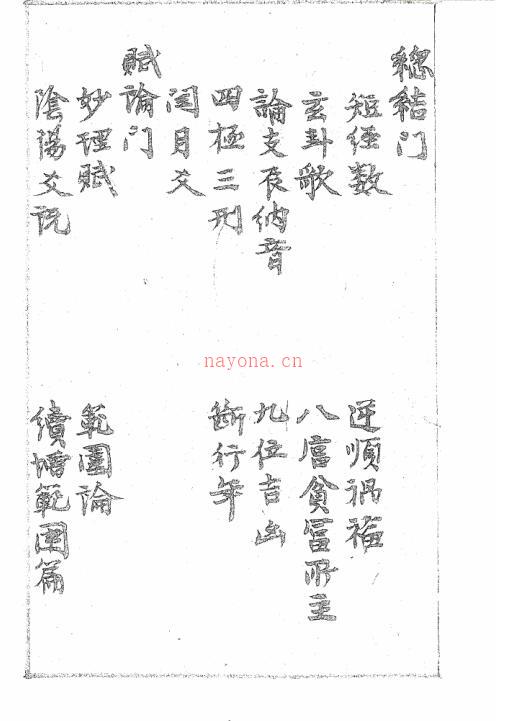 緫結门
短経数 逆順禍福
玄卦歌 八宫貧冨所主
論支辰納音 九位吉凶
四極三刑 斷行年
闰月爻
賦論门
妙理賦 範圍論
陰陽爻説 續增範圍篇
nayona.cn